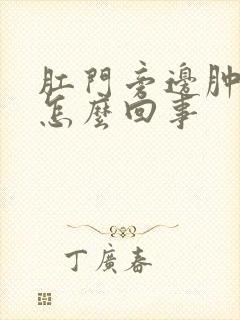 肛門旁邊肿
怎麼回事
丁廣春